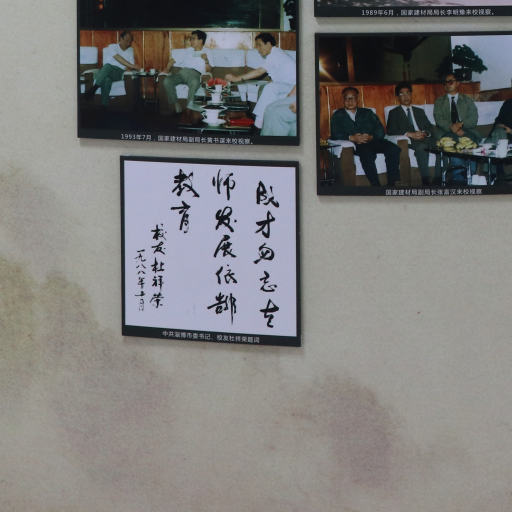 1989年6月，国家建材局局长李明豫来校视察。
1993年7月，国家建材局副局长黄书谋来校视察。
国家建材局副局长张富汉来校视察
成才勿忘老
师发展依靠
教育
校友杜祥荣
一九八八年
中共淄博市委书记、校友杜祥荣题词